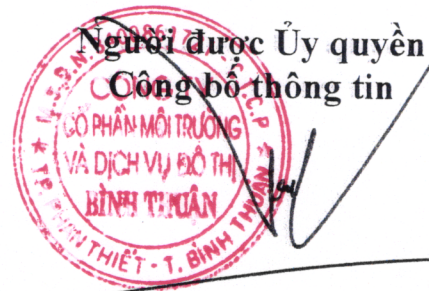 Người được Ủy quyền
Công bố thông tin
CÔNG TY
CỔ PHẦN MÔI TRƯỜNG
VÀ DỊCH VỤ ĐÔ THỊ
BÌNH THUẬN
PHAN THIẾT - T. BÌNH THUẬN